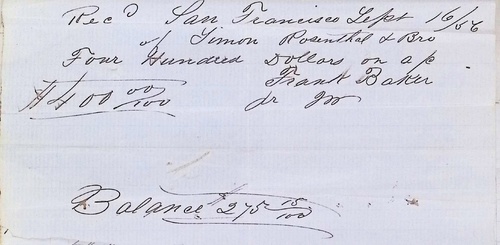 Rec^d San Francisco Sept 16/56
of Simon Rosenthal & Bro
Four Hundred Dollars on a/c
$400 00/100 Frank Baker
pr
Balance $275 15/100